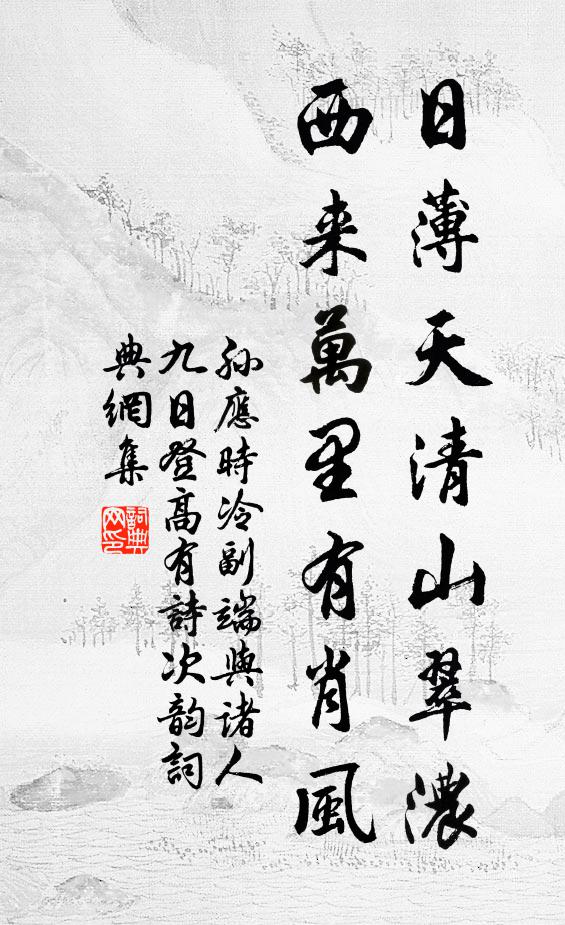 日薄天清山翠濃
西来萬里有肖風
孫應時冷副端與诸人
九日登高有詩次韵詞
典網集
詞典网印